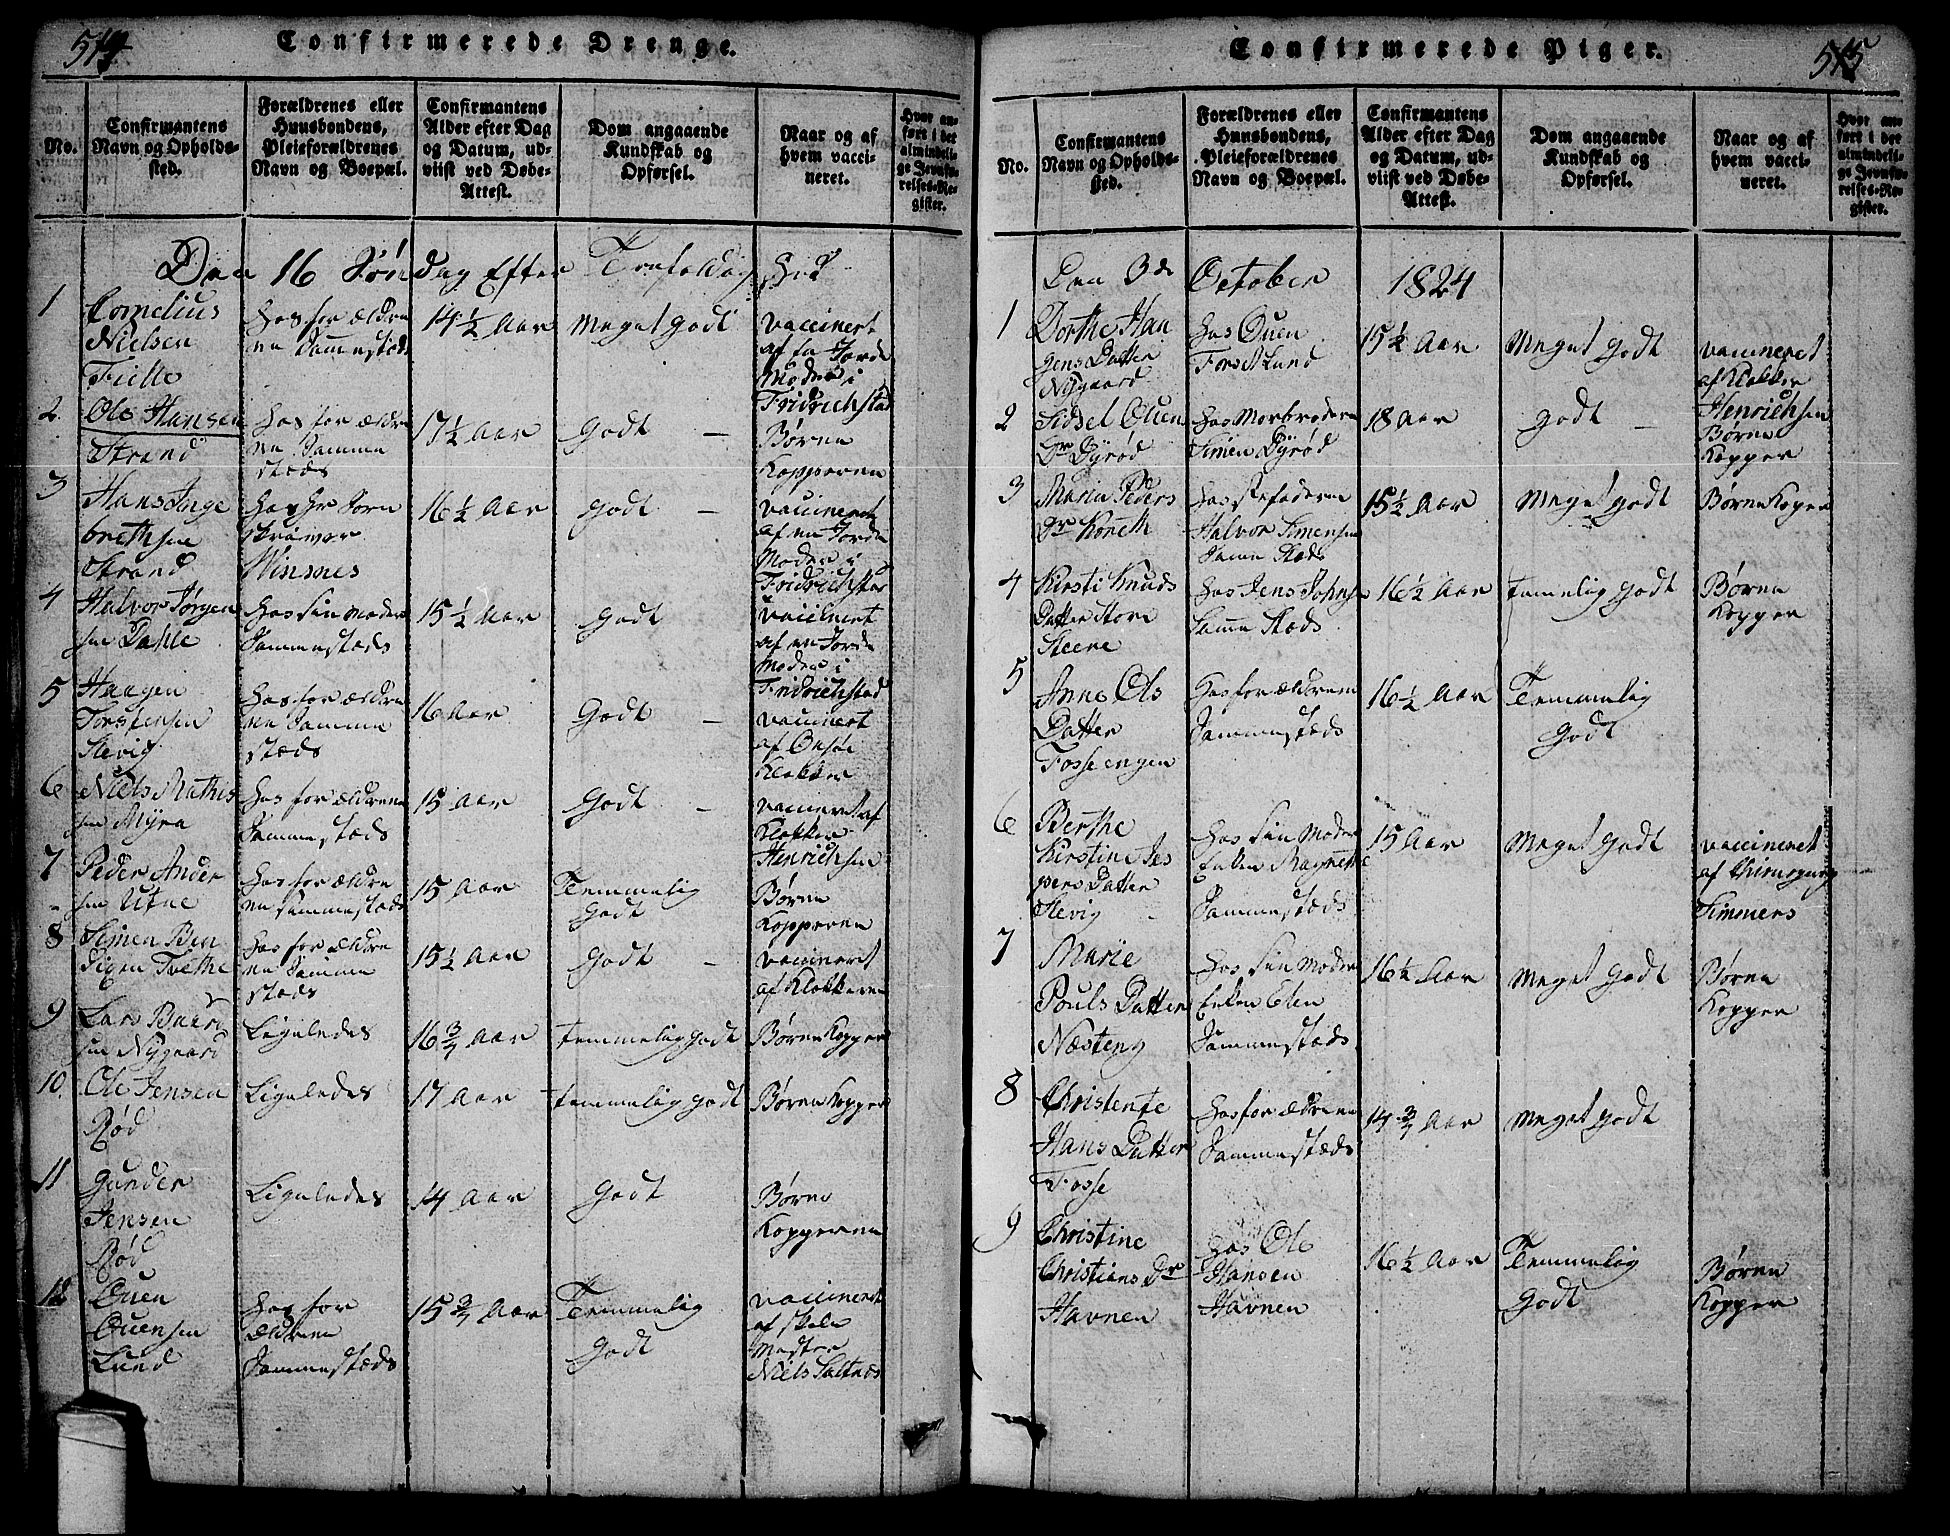 Confirmerede Drenge.
No.
Confirmantens
Navn og Opholds-
sted.
Forældrenes eller
Huusbondens,
Pleieforældrenes
Navn og Boepæl.
Confirmantens
Alder efter Dag
og Datum, ud-
viist ved Døbe-
Attest.
Dom angaaende
Kundskab og
Opførsel.
Naar og af
hvem vacci-
neret.
Hvor an-
ført i det
almindeli-
ge Jevnfø-
relses-Re-
gister.
Den 16 Søndag Efter Trefoldig
1
Cornelius
Nielsen
hos forældre
ne Sammestæds
14 1/2 Aar
Meget godt
vaccinert
af en Jorde
Moder i
Fridrichstad
2.
Ole Hansen
Strand
hos forældre
ne Samme
stæds
17 1/2 Aar
Godt –
Børne
Kopperne
3
Hans Inge
brethsen
Strand
Winsnes
16 1/2 Aar
Godt –
vaccineret
af en Jorde
Moder i
Fridrichstad
4
Halvor Jørgen
sen Dahle
hos sin Moder
Sammestæds
15 1/2 Aar
Godt
vaccineret
af en Jorde
Moder i
Fridrichstad
5
Haagen
Torstensen
Slevig
hos forældre
ne Samme
stæds
16 Aar
Godt –
vaccinert
af Onsøe
Klokker
6
Niels Mathis
sen Myra
hos forældrene
Sammestæds
15 Aar
Godt –
vaccineret af
Klokker
Henrichsen
7
Peder Ander
sen Utne
hos forældre
ne sammestæds
15 Aar
Temmelig
Godt
Børne
Kopperne
8
Simen Ben
digen Tvethe
hos forældre
ne Samme
stæds
15 1/2 Aar
Godt –
vaccineret
af Klokkeren
9
Lars Baard
sen Nygaard
Ligeledes
16 3/4 Aar
temmelig godt
Børne Kopper
10.
Ole Jensen
Rød
Ligeledes
17 Aar
temmelig godt
Børne Kopper
11
Gunder
Jensen
Rød
Ligeledes
14 Aar
Godt
Børne
Kopperne
12
Ouen
Ouensen
Lund
hos for
ældrene
Sammestæds
15 3/4 Aar
Temmelig
Godt
vaccinert
af skole
Mester
Niels Saltnes
Confirmerede Piger.
515
No.
Confirmantens
Navn og Opholds-
sted.
Forældrenes eller
Huusbondens,
Pleieforældrenes
Navn og Boepæl.
Confirmantens
Alder efter Dag
og Datum, ud-
viist ved Døbe-
Attest.
Dom angaaende
Kundskab og
Opførsel.
Naar og af
hvem vacci-
neret.
Hvor an-
ført i det
almindeli-
ge Jevnfø-
relses-Re-
gister.
Den 3de October 1824
1
Dorthe Haa
gens Datter
Nygaard
hos Ouen
Lund
15 1/2 Aar
Meget godt
vaccineret
af Klokker
Henrichsen
2
Sidsel Ouen
Dr Dyrød
hos Morbroderen
Simen Dyrød
18 Aar
godt –
Børne
Kopper
3
Maria Peders
Dr Koreth
hos stifaderen
Halvor Simensen
Samme Stæds
15 1/2 Aar
Meget godt
Børne Koper
4
Kirsti Knuds
Datter Store
Steene
hos Jens Johns
Samme Stæds
16 1/2 Aar
temelig godt
Børne
Kopper
5
Anne Ols
Datter
Fosseengen
hos forældrene
Sammestæds
16 1/2 Aar
Temmelig
Godt
6
Berthe
Kirstine Jes
pers Datter
Slevig
hos sin Moder
Enken Ragnethe
Sammestæds
15 Aar
Meget Godt
vaccineret
af Chirurgus
Simmers
7
Marie
Pouls Datter
Næsteng
hos sin Moder
Enken Elen
Sammestæds
16 1/2 Aar
Meget Godt
Børne
Kopper
8
Christente
Hans Datter
Fosse
hos forældrene
Sammestæds
14 3/4 Aar
Meget Godt
9
Christine
Christians Dr
Havnen
hos Ole
Hansen
Havnen
16 1/2 Aar
Temmelig
Godt
Børne
Kopper